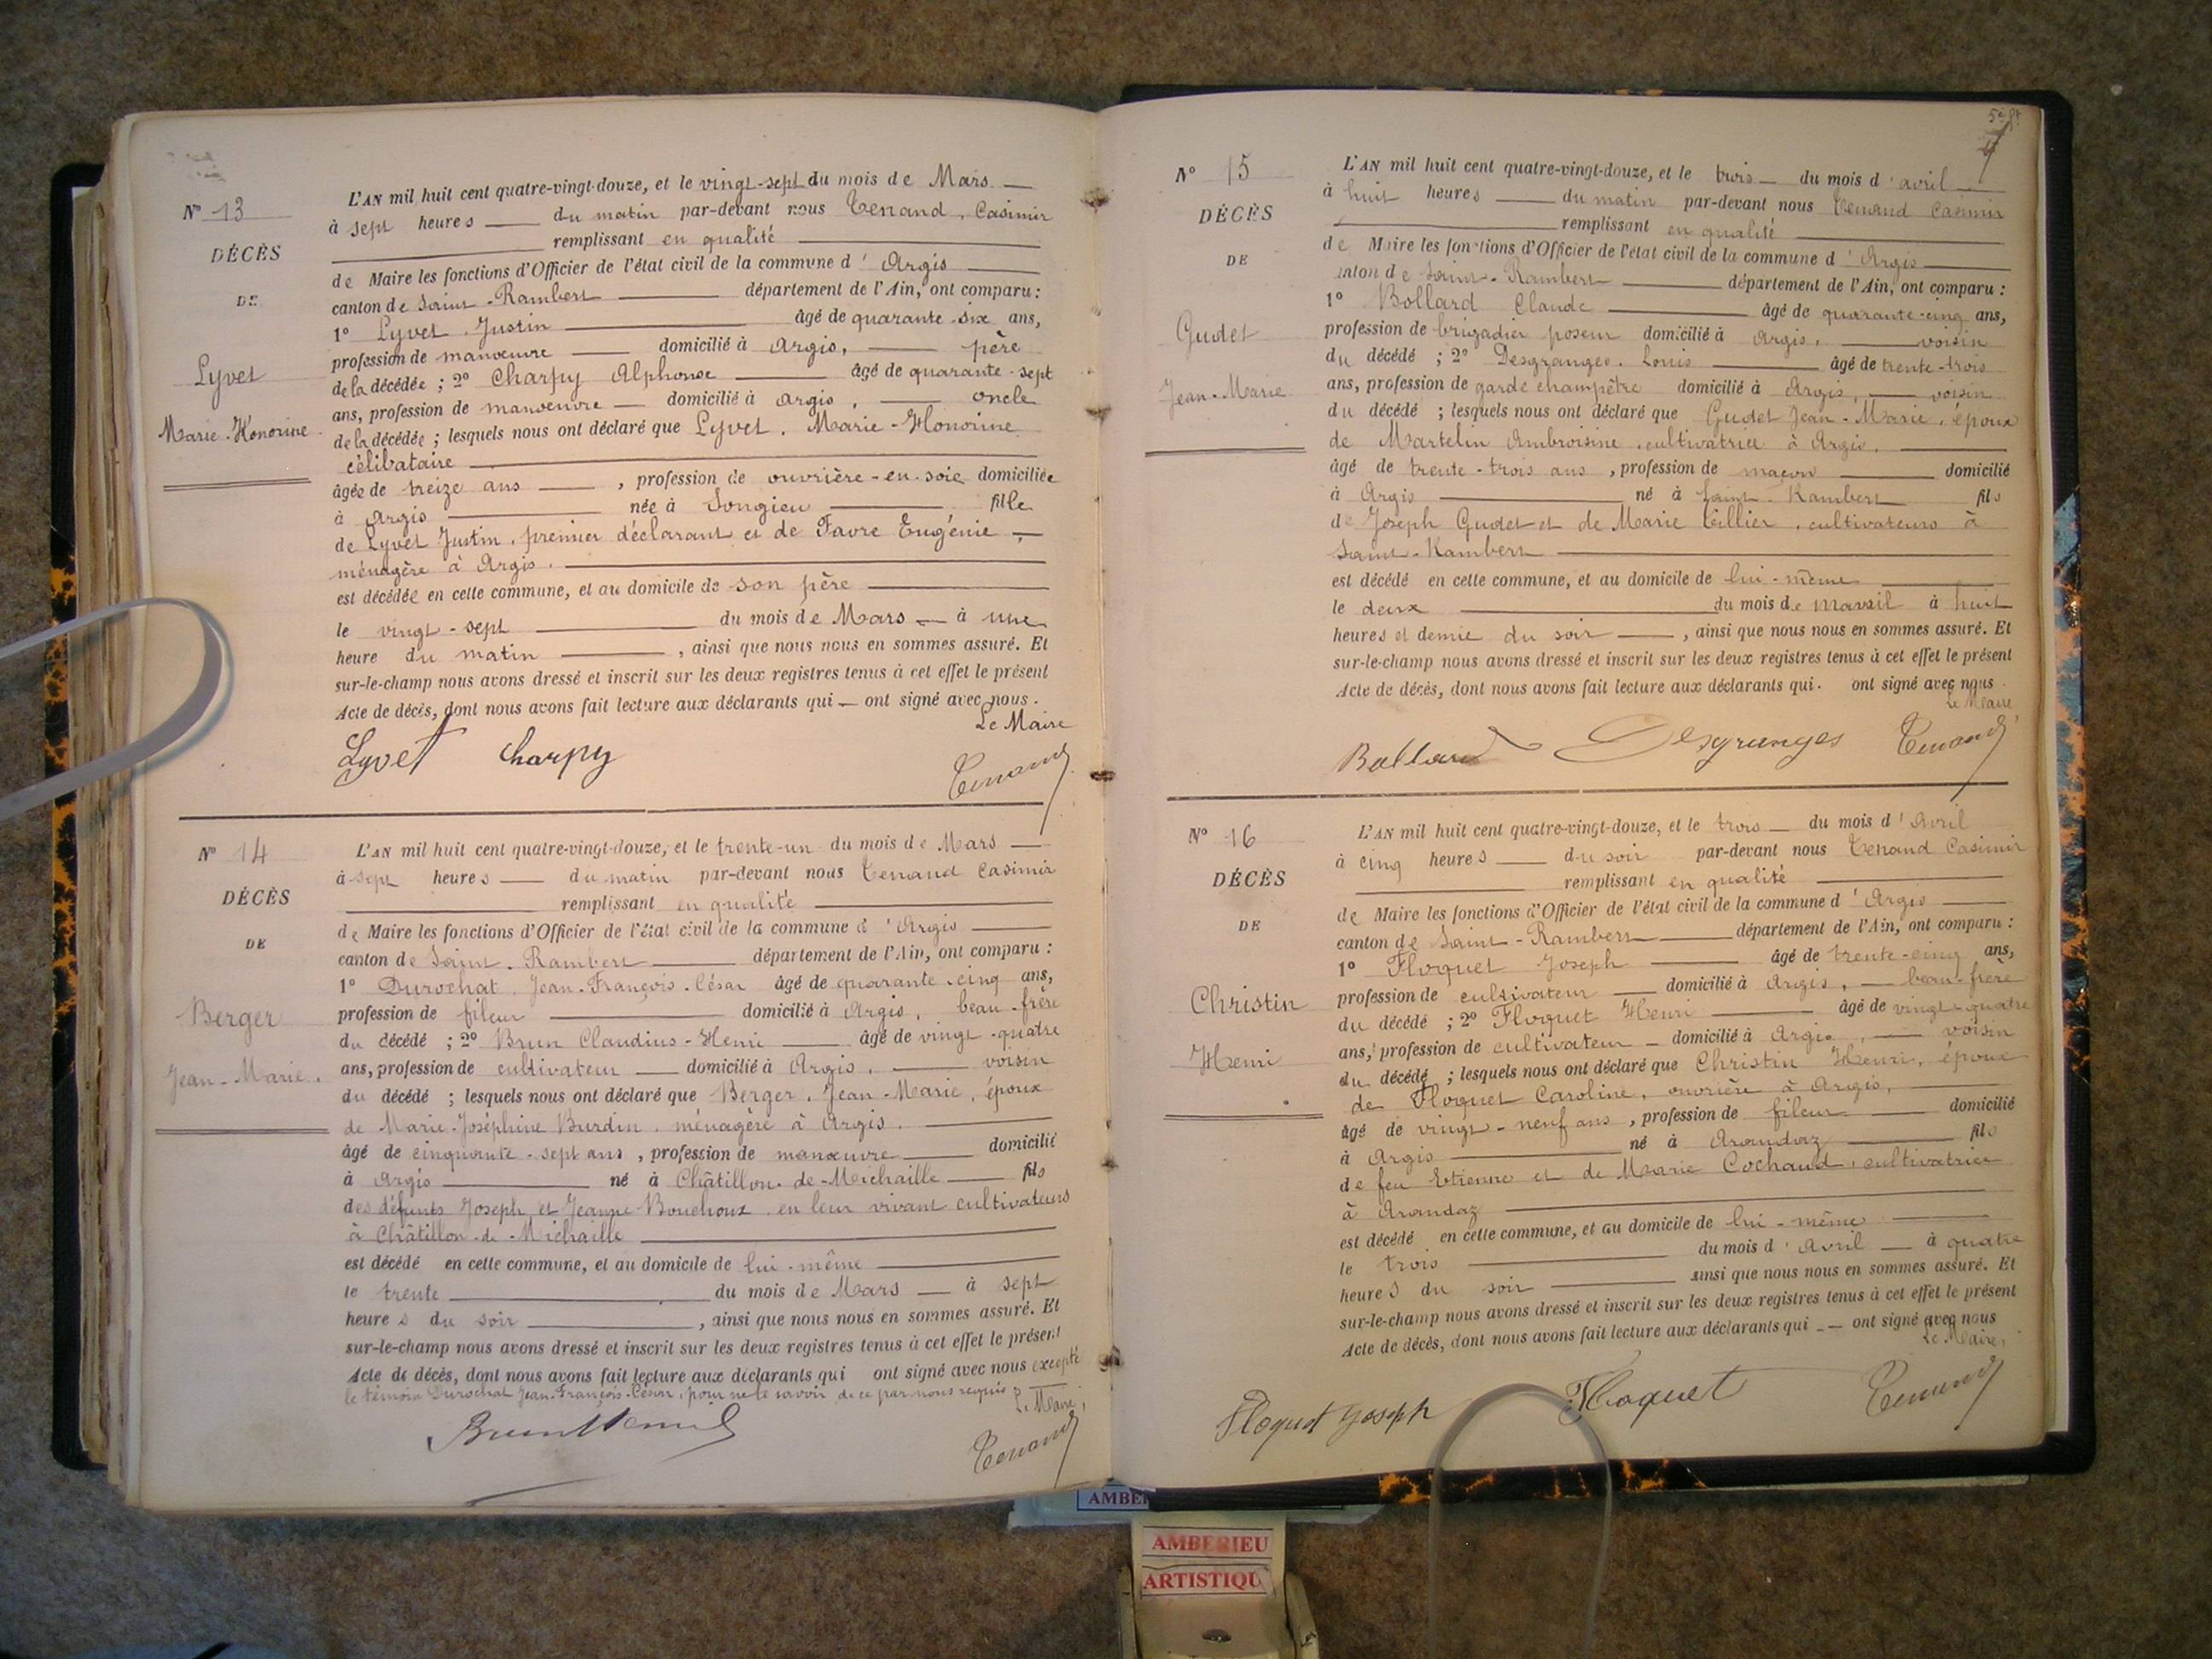 N° 13
DÉCÈS
DE
Lyvet
Marie-Honorine
L'AN mil huit cent quatre-vingt-douze, et le vingt-sept du mois de Mars
à sept heures du matin par-devant nous Tenand, Casimir
remplissant en qualité
de Maire les fonctions d'Officier de l'état civil de la commune d'Argis
canton de Saint-Rambert département de l'Ain, ont comparu :
1° Lyvet Justin âgé de quarante-six ans,
profession de manœuvre domicilié à Argis, père
de la décédée ; 2° Charpy Alphonse âgé de quarante-sept
ans, profession de manoeuvre domicilié à Argis, oncle
de la décédée ; lesquels nous ont déclaré que Lyvet, Marie-Honorine
célibataire
âgée de treize ans, profession de ouvrière-en-soie domiciliée
à Argis née à Songieu fille
de Lyvet Justin, premier déclarant et de Favre Eugénie
ménagère à Argis.
est décédée en cette commune, et au domicile de son père
le vingt-sept du mois de Mars à une
heure du matin, ainsi que nous nous en sommes assuré. Et
sur-le-champ nous avons dressé et inscrit sur les deux registres tenus à cet effet le présent
Acte de décès, dont nous avons fait lecture aux déclarants qui ont signé avec nous.
Le Maire
Lyvet Charpy Tenand
N° 14
DÉCÈS
DE
Berger
Jean-Marie.
L'AN mil huit cent quatre-vingt-douze, et le trente-un du mois de Mars
à sept heures du matin par-devant nous Tenand Casimir
remplissant en qualité
de Maire les fonctions d'Officier de l'état civil de la commune d'Argis
canton de Saint-Rambert département de l'Ain, ont comparu :
1° Durochat Jean-François-César âgé de quarante-cinq ans,
profession de fileur domicilié à Argis, beau-frère
du décédé ; 2° Brun Claudius-Henri âgé de vingt-quatre
ans, profession de cultivateur domicilié à Argis, voisin
du décédé ; lesquels nous ont déclaré que Berger, Jean-Marie, époux
de Marie-Joséphine Burdin, ménagère à Argis.
âgé de cinquante-sept ans, profession de manœuvre domicilié
à Argis né à Châtillon-de-Michaille fils
des défunts Joseph et Jeanne Bouchoux en leur vivant cultivateurs
à Châtillon-de-Michaille
est décédé en cette commune, et au domicile de lui-même
le trente du mois de Mars à sept
heures du soir, ainsi que nous nous en sommes assuré. Et
sur-le-champ nous avons dressé et inscrit sur les deux registres tenus à cet effet le présent
Acte de décès, dont nous avons fait lecture aux déclarants qui ont signé avec nous excepté
le témoin Durochat Jean-François-César, pour ne le savoir de ce par nous requis Le Maire,
Brun Henri Tenand
N° 15
DÉCÈS
DE
Gudet
Jean-Marie
L'AN mil huit cent quatre-vingt-douze, et le trois du mois d'avril
à huit heures du matin par-devant nous Tenand Casimir
remplissant en qualité
de Maire les fonctions d'Officier de l'état civil de la commune d'Argis
anton de Saint-Rambert département de l'Ain, ont comparu :
1° Bollard Claude âgé de quarante-cinq ans,
profession de brigadier poseur domicilié à Argis, voisin
du décédé ; 2° Desgranges, Louis âgé de trente-trois
ans, profession de garde champêtre domicilié à Argis, voisin
du décédé ; lesquels nous ont déclaré que Gudet Jean-Marie, époux
de Martelin Ambroisine, cultivatrice à Argis.
âgé de trente-trois ans, profession de maçon domicilié
à Argis né à Saint-Rambert fils
de Joseph Gudet et de Marie Tillier, cultivateurs à
Saint-Rambert
est décédé en cette commune, et au domicile de lui-même
le deux du mois de à huit
heures et demie du soir, ainsi que nous nous en sommes assuré. Et
sur-le-champ nous avons dressé et inscrit sur les deux registres tenus à cet effet le présent
Acte de décès, dont nous avons fait lecture aux déclarants qui ont signé avec nous.
Le Maire
Bollard Desgranges Tenand
N° 16
DÉCÈS
DE
Christin
Henri
L'AN mil huit cent quatre-vingt-douze, et le trois du mois d'Avril
à cinq heures du soir par-devant nous Tenand Casimir
remplissant en qualité
de Maire les fonctions d'Officier de l'état civil de la commune d'Argis
canton de Saint-Rambert département de l'Ain, ont comparu :
1° Floquet Joseph âgé de trente-cinq ans,
profession de cultivateur domicilié à Argis, beau-frère
du décédé ; 2° Floquet Henri âgé de vingt-quatre
ans, profession de cultivateur domicilié à Argis, voisin
du décédé ; lesquels nous ont déclaré que Christin Henri, époux
de Floquet Caroline, ouvrière à Argis,
âgé de vingt-neuf ans, profession de fileur domicilié
à Argis né à Arandaz fils
de feu Etienne et de Marie Cochaud, cultivatrice
à Arandaz
est décédé en cette commune, et au domicile de lui-même
le trois du mois d'Avril à quatre
heures du soir ainsi que nous nous en sommes assuré. Et
sur-le-champ nous avons dressé et inscrit sur les deux registres tenus à cet effet le présent
Acte de décès, dont nous avons fait lecture aux déclarants qui ont signé avec nous
Le Maire,
Floquet Joseph Floquet Tenand
AMBE
AMBERIEU
ARTISTIQU